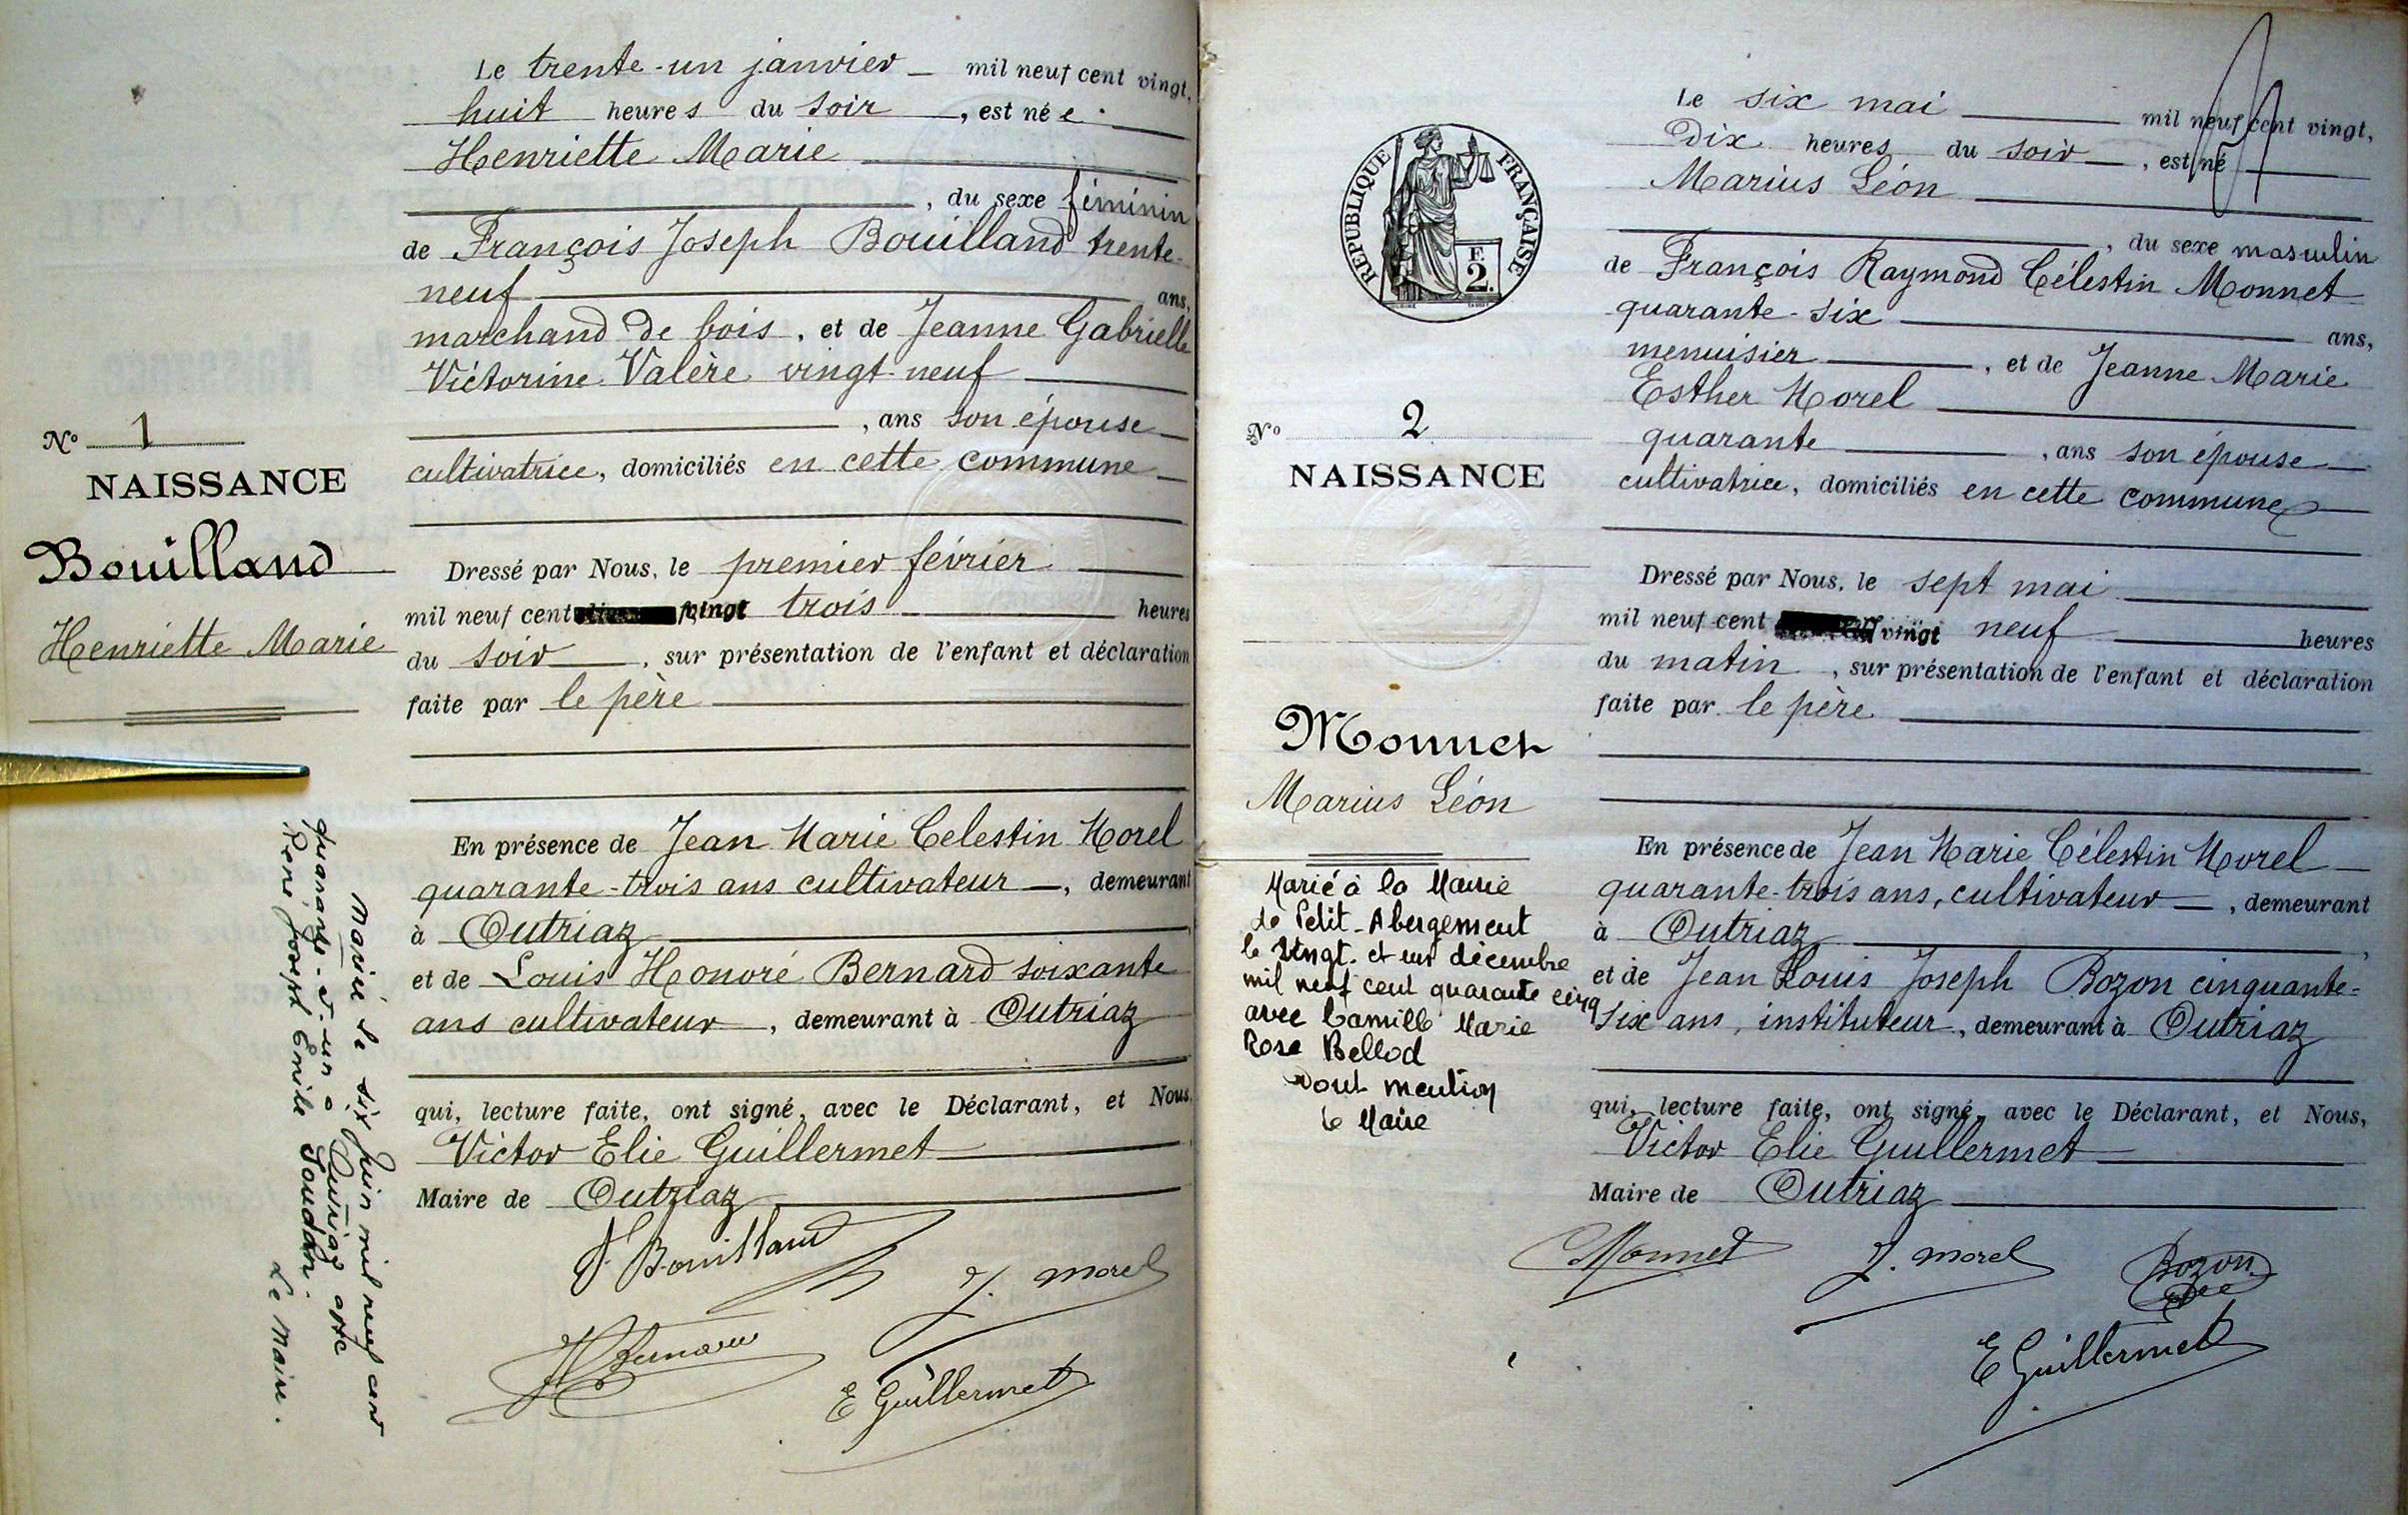 Le trente-un janvier mil neuf cent vingt,
huit heures du soir, est née
Henriette Marie
, du sexe féminin
de François Joseph Bouilland trente-
neuf ans,
marchand de bois, et de Jeanne Gabrielle
Victorine Valère vingt-neuf
, ans son épouse
cultivatrice, domiciliés en cette commune
Nº 1
NAISSANCE
Bouilland
Henriette Marie
Dressé par Nous, le premier février
mil neuf cent vingt trois heures
du soir, sur présentation de l'enfant et déclaration
faite par le père
En présence de Jean Marie Celestin Morel
quarante-trois ans cultivateur, demeurant
à Outriaz
et de Louis Honoré Bernard soixante
ans cultivateur, demeurant à Outriaz
qui, lecture faite, ont signé, avec le Déclarant, et Nous,
Victor Elie Guillermet
Maire de Outriaz
F Bouilland
J. Morel
H Bernard
E Guillermet
Mariée le six juin mil neuf cent
quarante-et-un à Outriaz avec
René Joseph Emile Soudan.
Le Maire.
RÉPUBLIQUE FRANÇAISE
F.
2.
Nº 2
NAISSANCE
Monnet
Marius Léon
Marié à la Mairie
de Petit-Abergement
le vingt-et un décembre
mil neuf cent quarante cinq
avec Camille Marie
Rose Bellod
Dont mention
Le Maire
Le six mai mil neuf cent vingt,
Dix heures du soir, est né
Marius Léon
, du sexe masculin
de François Raymond Célestin Monnet
quarante-six ans,
menuisier, et de Jeanne Marie
Esther Morel
quarante, ans son épouse
cultivatrice, domiciliés en cette commune
Dressé par Nous, le sept mai
mil neuf cent vingt neuf heures
du matin, sur présentation de l'enfant et déclaration
faite par le père
En présence de Jean Marie Célestin Morel
quarante-trois ans, cultivateur, demeurant
à Outriaz
et de Jean Louis Joseph Bozon cinquante-
six ans, instituteur, demeurant à Outriaz
qui, lecture faite, ont signé, avec le Déclarant, et Nous,
Victor Elie Guillermet
Maire de Outriaz
Monnet
J. Morel
Bozon
E Guillermet